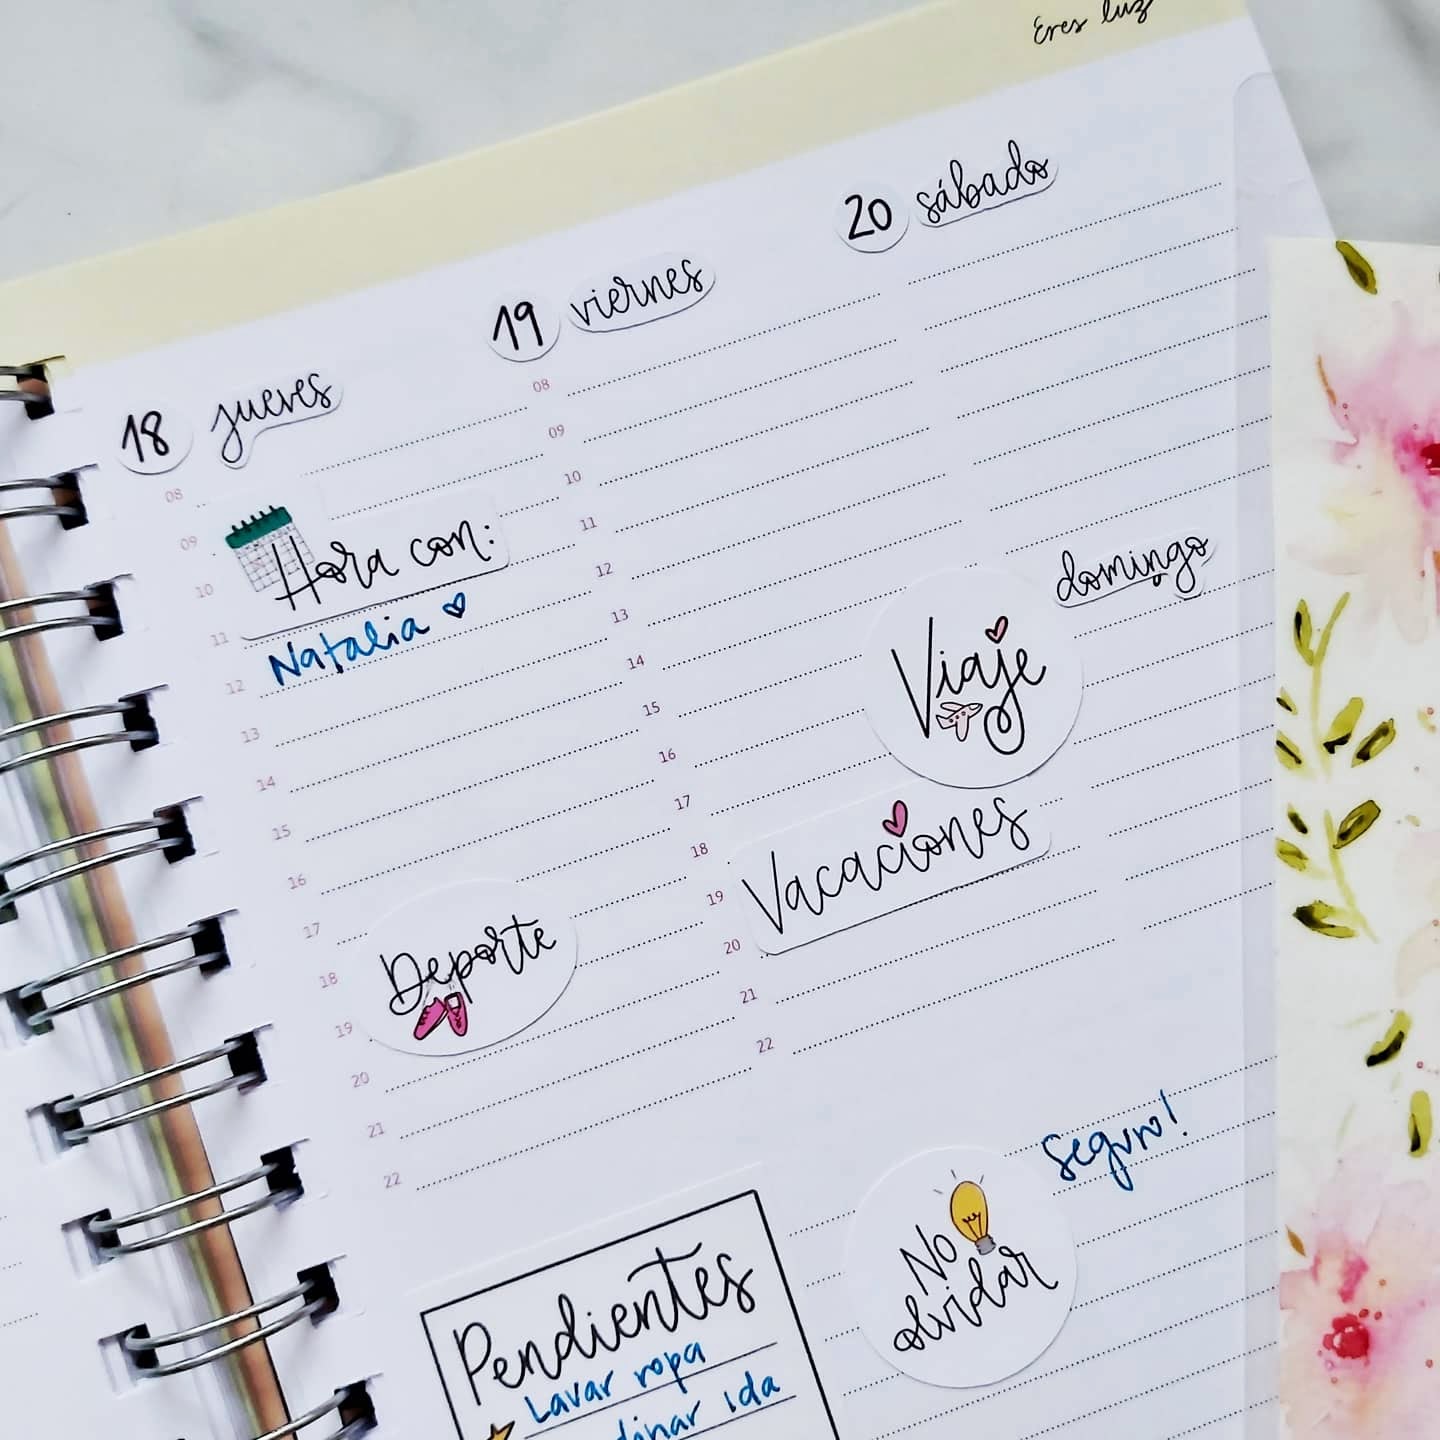 Eres luz
18 jueves
08
09
Hora con:
10
11
Natalia
12
13
14
15
16
17
Deporte
18
19
20
21
22
19 viernes
08
09
10
11
12
13
14
15
16
17
18
19
20
21
22
20 sábado
domingo
Viaje
Vacaciones
Pendientes
Lavar ropa
ida
No
olvidar
Seguro!